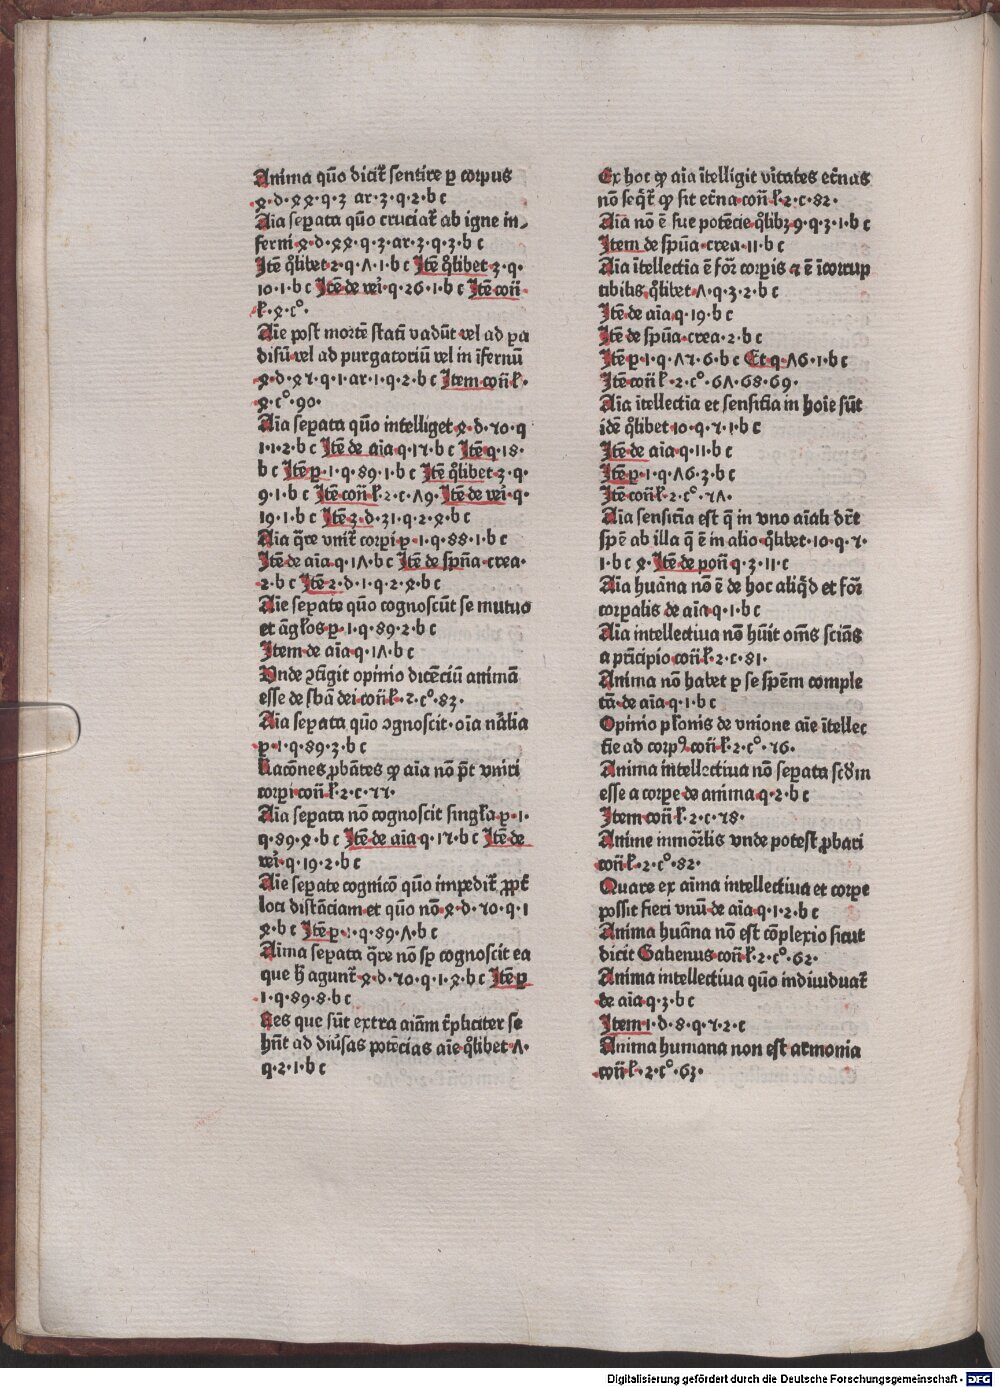 Anima quo̅ dicit̛ sentire ꝑ corpus
4·d·44·q·3 ar·3·q·2·b c
Aia seꝑata quo̅ cruciat̛ ab igne in-
ferni 4·d·44·q·3·ar·3·q·3·b c
Ite̅ q̊libet 2·q·Λ·1·b c Ite̅ q̊libet 3·q·
10·1·b c Ite̅ de vei̛·q·26·1·b c Ite̅ con̅
ł·4·c°·
Aie post morte̅ stati̅ vadu̅t vel ad ꝑa
disu̅ vel ad purgatoriu̅ vel in i̅fernu̅
4·d·47·q·1·ar·1·q·2·b c Item con̅ ł·
4·c°·90·
Aia seꝑata quo̅ intelliget 4·d·70·q
1·1·2·b c Ite̅ de aia q·17·b c Ite̅ q·18·
b c Ite̅ ꝑ·1·q·89·1·b c Ite̅ q̊libet 3·q·
9·1·b c Ite̅ con̅ ł·2·c·Λ9·Ite̅ de vei̛·q·
19·1·b c Ite̅ 3·d·31·q·2·4·b c
Aia q̅re vnit̛ corꝑi ꝑ·1·q·88·1·b c
Ite̅ de aia·q·1Λ·b c Ite̅ de spn̅a crea·
2·b c Ite̅ 2·d·1·q·2·4·b c
Aie seꝑate quo̅ cognoscu̅t se mutuo
et a̅głos ꝑ·1·q·89·2·b c
Item de aia·q·1Λ·b c
Unde ꝯtigit opinio dice̅ciu̅ anima̅
esse de sba̅ dei con̅ ł·2·c°·83·
Aia seꝑata quo̅ ꝯgnoscit·oi̅a na̅lia
ꝑ·1·q·89·3·b c
Raco̅nes ꝓba̅tes ꝙ aia no̅ p̅t vniri
corꝑi con̅ ł·2·c·77·
Aia seꝑata no̅ cognoscit singła ꝑ·1·
q·89·4·b c Ite̅ de aia q·17·b c Ite̅ de
vei̛·q·19·2·b c
Aie seꝑate cognico̅ quo̅ impedit̛ ꝓpt̛
loci dista̅ciam et quo̅ no̅ 4·d·70·q·1
4·b c Ite̅ ꝑ·1·q·89·Λ·b c
Aima seꝑata q̅re no̅ sꝑ cognoscit ea
que h̅ agunt̛ 4·d·70·q·1·4·b c Ite̅ ꝑ
1·q·89·8·b c
Res que su̅t extra aia̅m t̛pliciter se
hn̅t ad diưsas pote̅cias aie q̊libet Λ·
q·2·1·b c
Ex hoc ꝙ aia i̅telligit vi̛tates et̛nas
no̅ seq̅t̛ ꝙ sit et̛na con̅ ł·2·c·82·
Aia no̅ e̅ sue pote̅cie q̊libꝫ 9·q·3·1·b c
Item de spn̅a·crea·11·b c
Aia i̅tellectia e̅ for̅ corꝑis ⁊ e̅ i̅corrup
tibilis q̊libet·Λ·q·3·2·b c
Ite̅ de aia q·19·b c
Ite̅ de spn̅a·crea·2·b c
Ite̅ ꝑ·1·q·Λ7·6·b c Et q·Λ6·1·b c
Ite̅ con̅ ł·2·c°·6Λ·68·69·
Aia i̅tellectia et sensitia in hoi̅e su̅t
ide̅ q̊libet 10·q·7·1·b c
Ite̅ de aia q·11·b c
Ite̅ ꝑ·1·q·Λ6·3·b c
Ite̅ con̅ ł·2·c°·7Λ·
Aia sensitia est q̅ in vno aiali dr̅e
spe̅ ab illa q̅ e̅ in alio q̊libet·10·q·7·
1·b c 4·Ite̅ de pon̅ q·3·11·c
Aia hua̅na no̅ e̅ de hoc aliq̊d et for̅
corꝑalis de aia q·1·b c
Aia intellectiua no̅ hu̅it om̅s scia̅s
a p̛ncipio con̅ ł·2·c·81·
Anima no̅ habet ꝑ se spe̅m comple
ta̅·de aia q·1·b c
Opinio płonis de vnione aie i̅tellec
tie ad corpꝰ con̅ ł·2·c°·76·
Anima intellectiua no̅ seꝑata scd̅m
esse a corꝑe de anima q·2·b c
Item con̅ ł·2·c·78·
Anime inmor̅lis vnde potest ꝓbari
con̅ ł·2·c°·82·
Quare ex aima intellectiua et corꝑe
possit fieri vnu̅ de aia q·1·2·b c
Anima hua̅na no̅ est co̅plexio sicut
dicit Galienus con̅ ł·2·c°·62·
Anima intellectiua quo̅ indiuiduat̛
de aia q·3·b c
Item 1·d·8·q·7·2·c
Anima humana non est armonia
con̅ ł·2·c°·63·
Digitalisierung gefördert durch die Deutsche Forschungsgemeinschaft · DFG